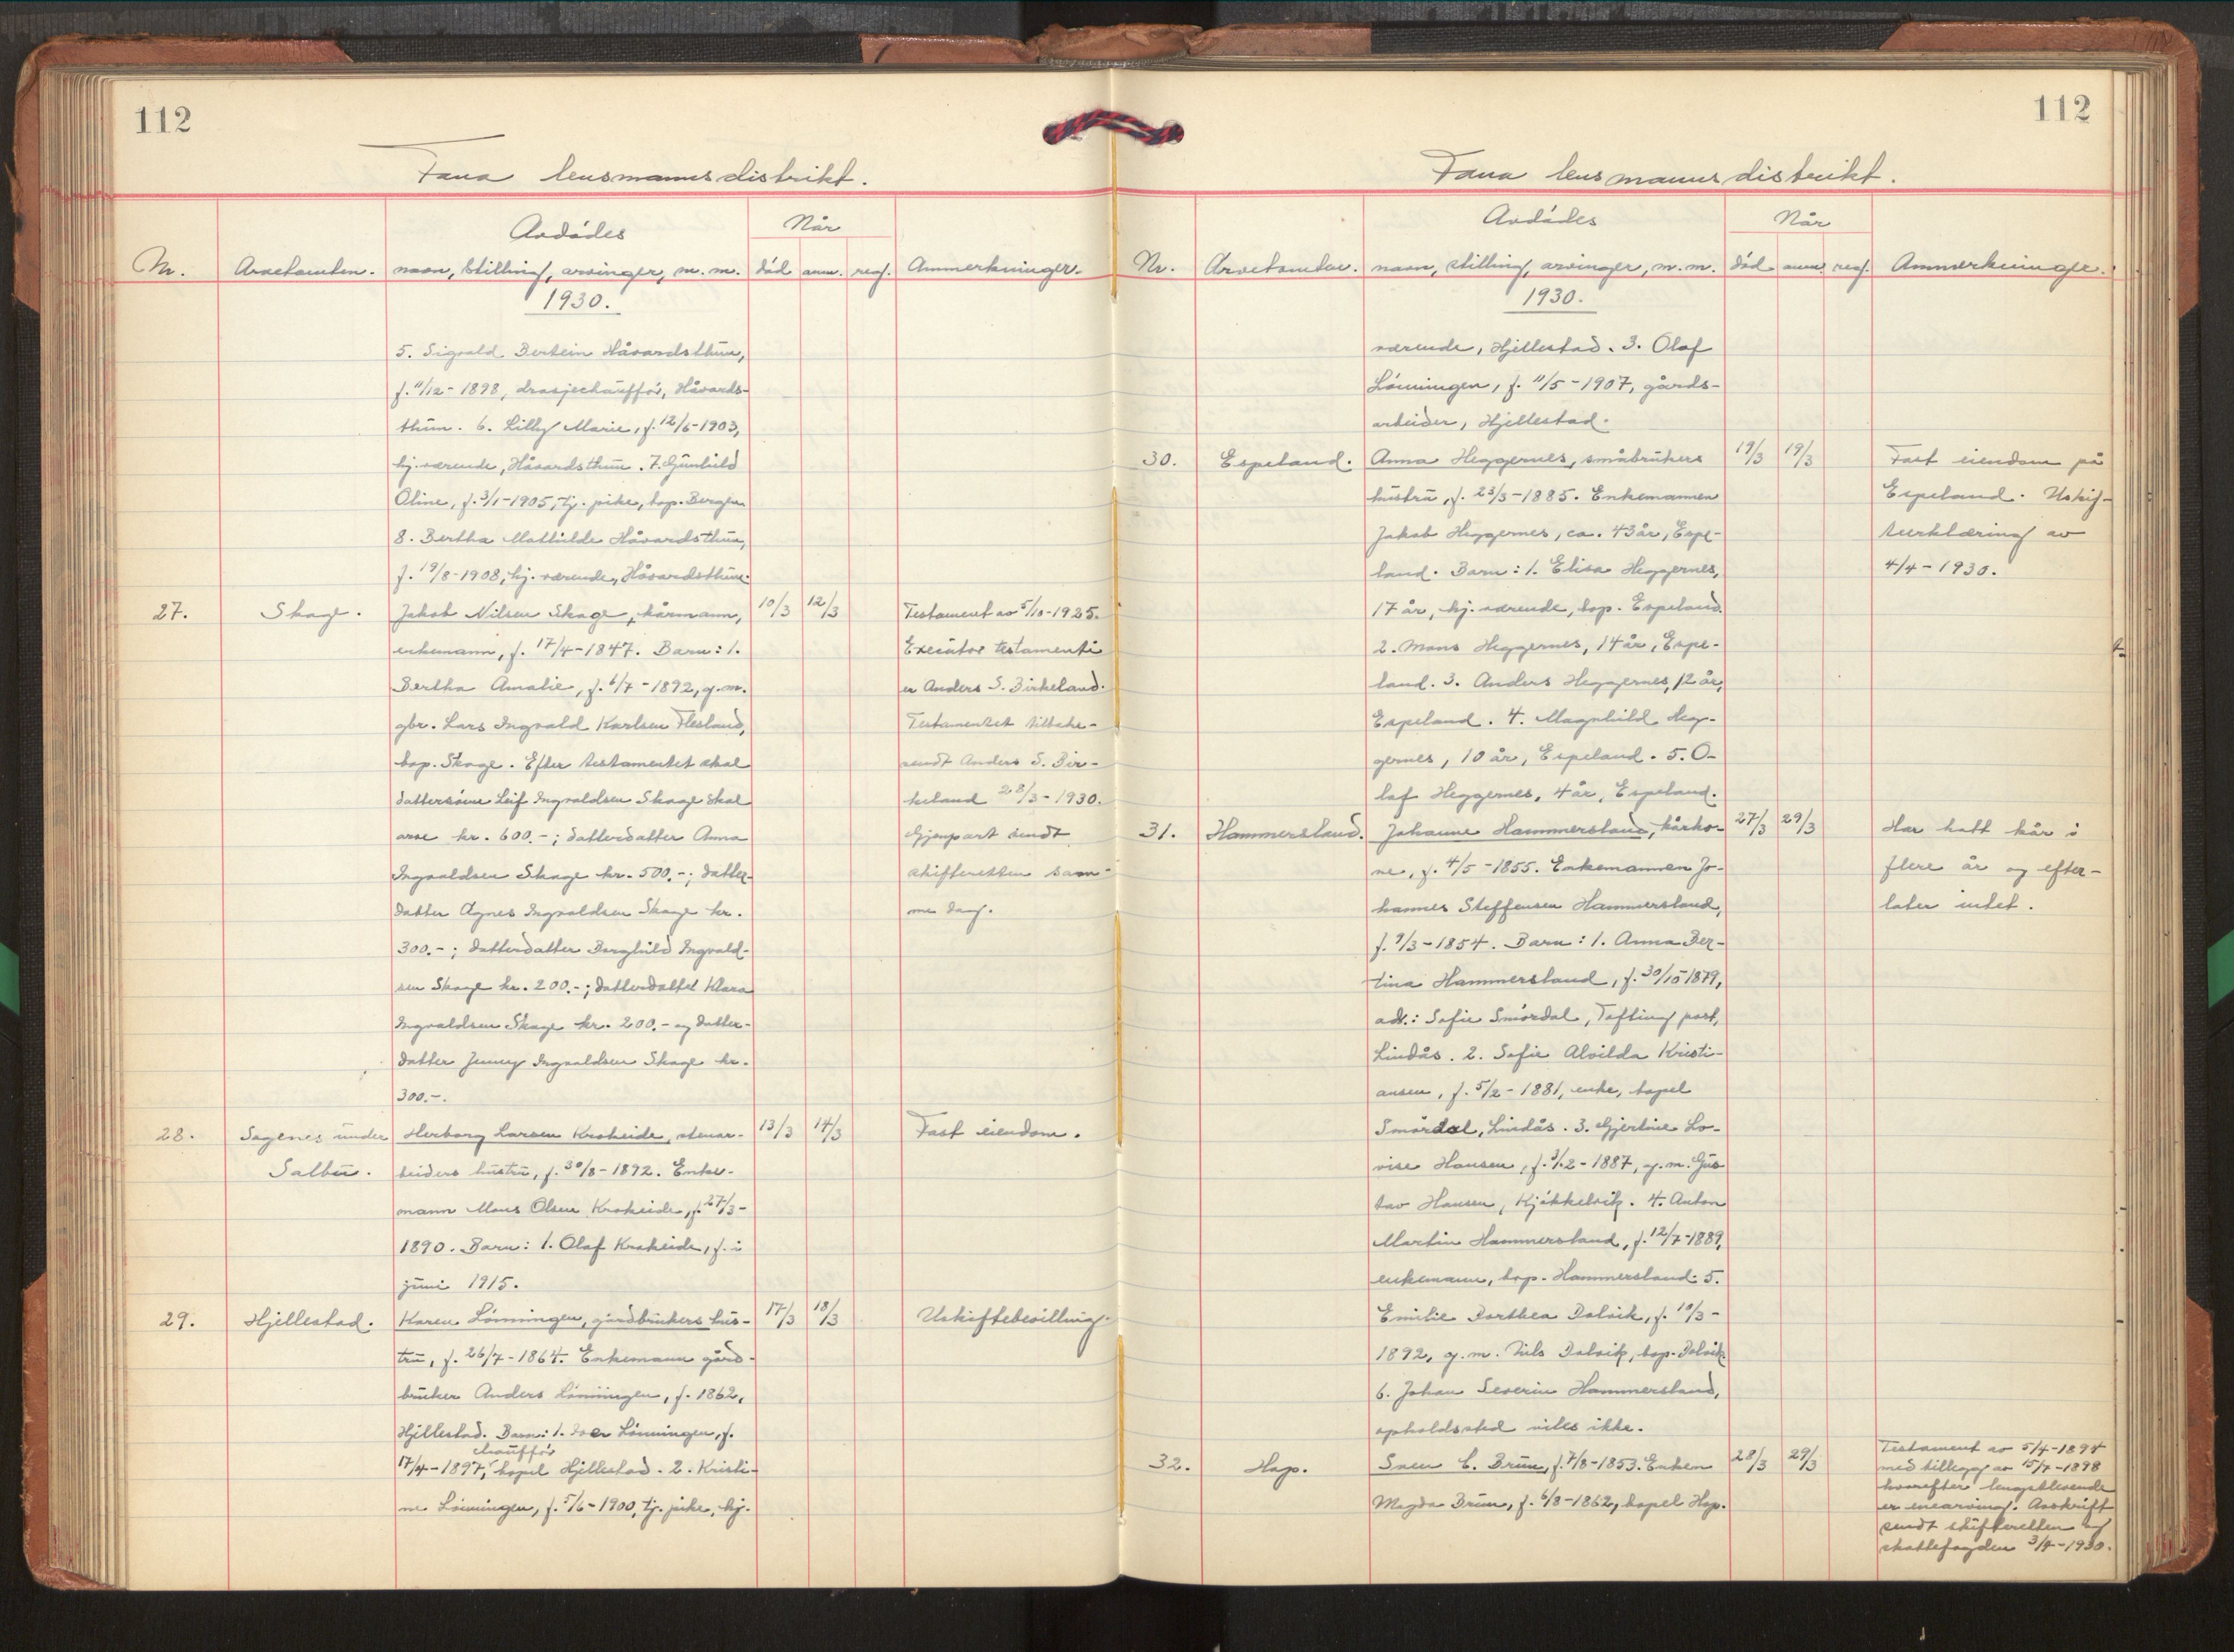 112
Fana lensmannsdistrikt.
Nr. Arvetomten. Avdödes navn, stilling, arvinger, m. m. Når död anm. reg. Anmerkninger.
1930.
5. Sigvald Bertein Håvardsthun,
f. 11/12-1898, drosjechauffør, Håvards-
thun. 6. Lilly Marie, f. 12/6-1903,
hj. værende, Håvardsthun. 7. Gunhild
Oline, f. 3/1-1905, tj. pike, bop. Bergen
8. Bertha Mathilde Håvardsthun,
f. 19/8-1908, hj. værende, Håvardsthun.
27. Skage. Jakob Nilsen Skage, kårmann, 10/3 12/3 Testament av 5/10-1925.
enkemann, f. 17/4-1847. Barn: 1. Executor testamenti
Bertha Amalie, f. 6/7-1892, g. m. er Anders S. Birkeland.
gbr. Lars Ingvald Karlsen Flesland, Testamentet tilbake-
bop. Skage. Efter testamentet skal sendt Anders S. Bir-
dattersönn Leif Ingvaldsen Skage skal keland 28/3-1930.
arve kr. 600.-; datterdatter Anna Gjenpart sendt
Ingvaldsen Skage kr. 500.-; datter- skifteretten sam-
datter Agnes Ingvaldsen Skage kr. me dag.
300.-; datterdatter Borghild Ingvald-
sen Skage kr. 200.-; datterdatter Klara
Ingvaldsen Skage kr. 200.- og datter-
datter Jenny Ingvaldsen Skage kr.
300.-.
28. Sagenes under Herborg Larsen Krokeide, stenar- 13/3 14/3 Fast eiendom.
Salbu. beiders hustru, f. 30/8-1892. Enke-
mann Mons Olsen Krokeide, f. 27/3-
1890. Barn: 1. Olaf Krokeide, f. i
juni 1915.
29. Hjellestad. Karen Lönningen, gårdbrukers hus- 17/3 18/3 Uskiftebevilling.
tru, f. 26/7-1864. Enkemann gård-
bruker Anders Lönningen, f. 1862,
Hjellestad. Barn: 1. Iver Lönningen, f.
chaufför
17/4-1897, bopel Hjellestad. 2. Kristi-
ne Lönningen, f. 5/6-1900, tj. pike, hj.
112
Fana lensmannsdistrikt.
Nr. Arvetomten. Avdödes navn, stilling, arvinger, m. m. Når död anm. reg. Anmerkninger.
1930.
værende, Hjellestad. 3. Olaf
Lönningen, f. 11/5-1907, gårds-
arbeider, Hjellestad.
30. Espeland. Anna Heggernes, småbrukers 19/3 19/3 Fast eiendom på
hustru, f. 23/3-1885. Enkemannen Espeland. Uskif-
Jakob Heggernes, ca. 43 år, Espe- teerklæring av
land. Barn: 1. Elisa Heggernes, 4/4-1930.
17 år, hj. værende, bop. Espeland.
2. Mons Heggernes, 14 år, Espe-
land. 3. Anders Heggernes, 12 år,
Espeland. 4. Magnhild Heg-
gernes, 10 år, Espeland. 5. O-
laf Heggernes, 4 år, Espeland.
31. Hammersland. Johanne Hammersland, kårko- 27/3 29/3 Har hatt kår i
ne, f. 4/5-1855. Enkemannen Jo- flere år og efter-
hannes Steffensen Hammersland, later intet.
f. 9/3-1854. Barn: 1. Anna Ber-
tina Hammersland, f. 30/10 1879,
adr.: Sofie Smördal, Tofting post,
Lindås. 2. Sofie Alvilda Kristi-
ansen, f. 5/2-1881, enke, bopel
Smördal, Lindås. 3. Gjertine Lo-
vise Hansen, f. 3/12-1887, g. m. Gus
tav Hansen, Kjökkelvik. 4. Anton
Martin Hammersland, f. 12/7-1889,
enkemann, bop. Hammersland. 5.
Emilie Dorthea Dolvik, f. 10/3-
1892, g. m. Nils Dolvik, bop. Dolvik
6. Johan Severin Hammersland,
opholdssted vites ikke.
32. Hop. Sven C. Brun, f. 7/8-1853. Enken 28/3 29/3 Testament av 5/4-1894
Magda Brun, f. 6/8-1862, bopel Hop. med tillegg av 15/7-1898
hvorefter lengstlevende
er enearving. Avskrift
sendt skifteretten og
skattefogden 3/4-1930.